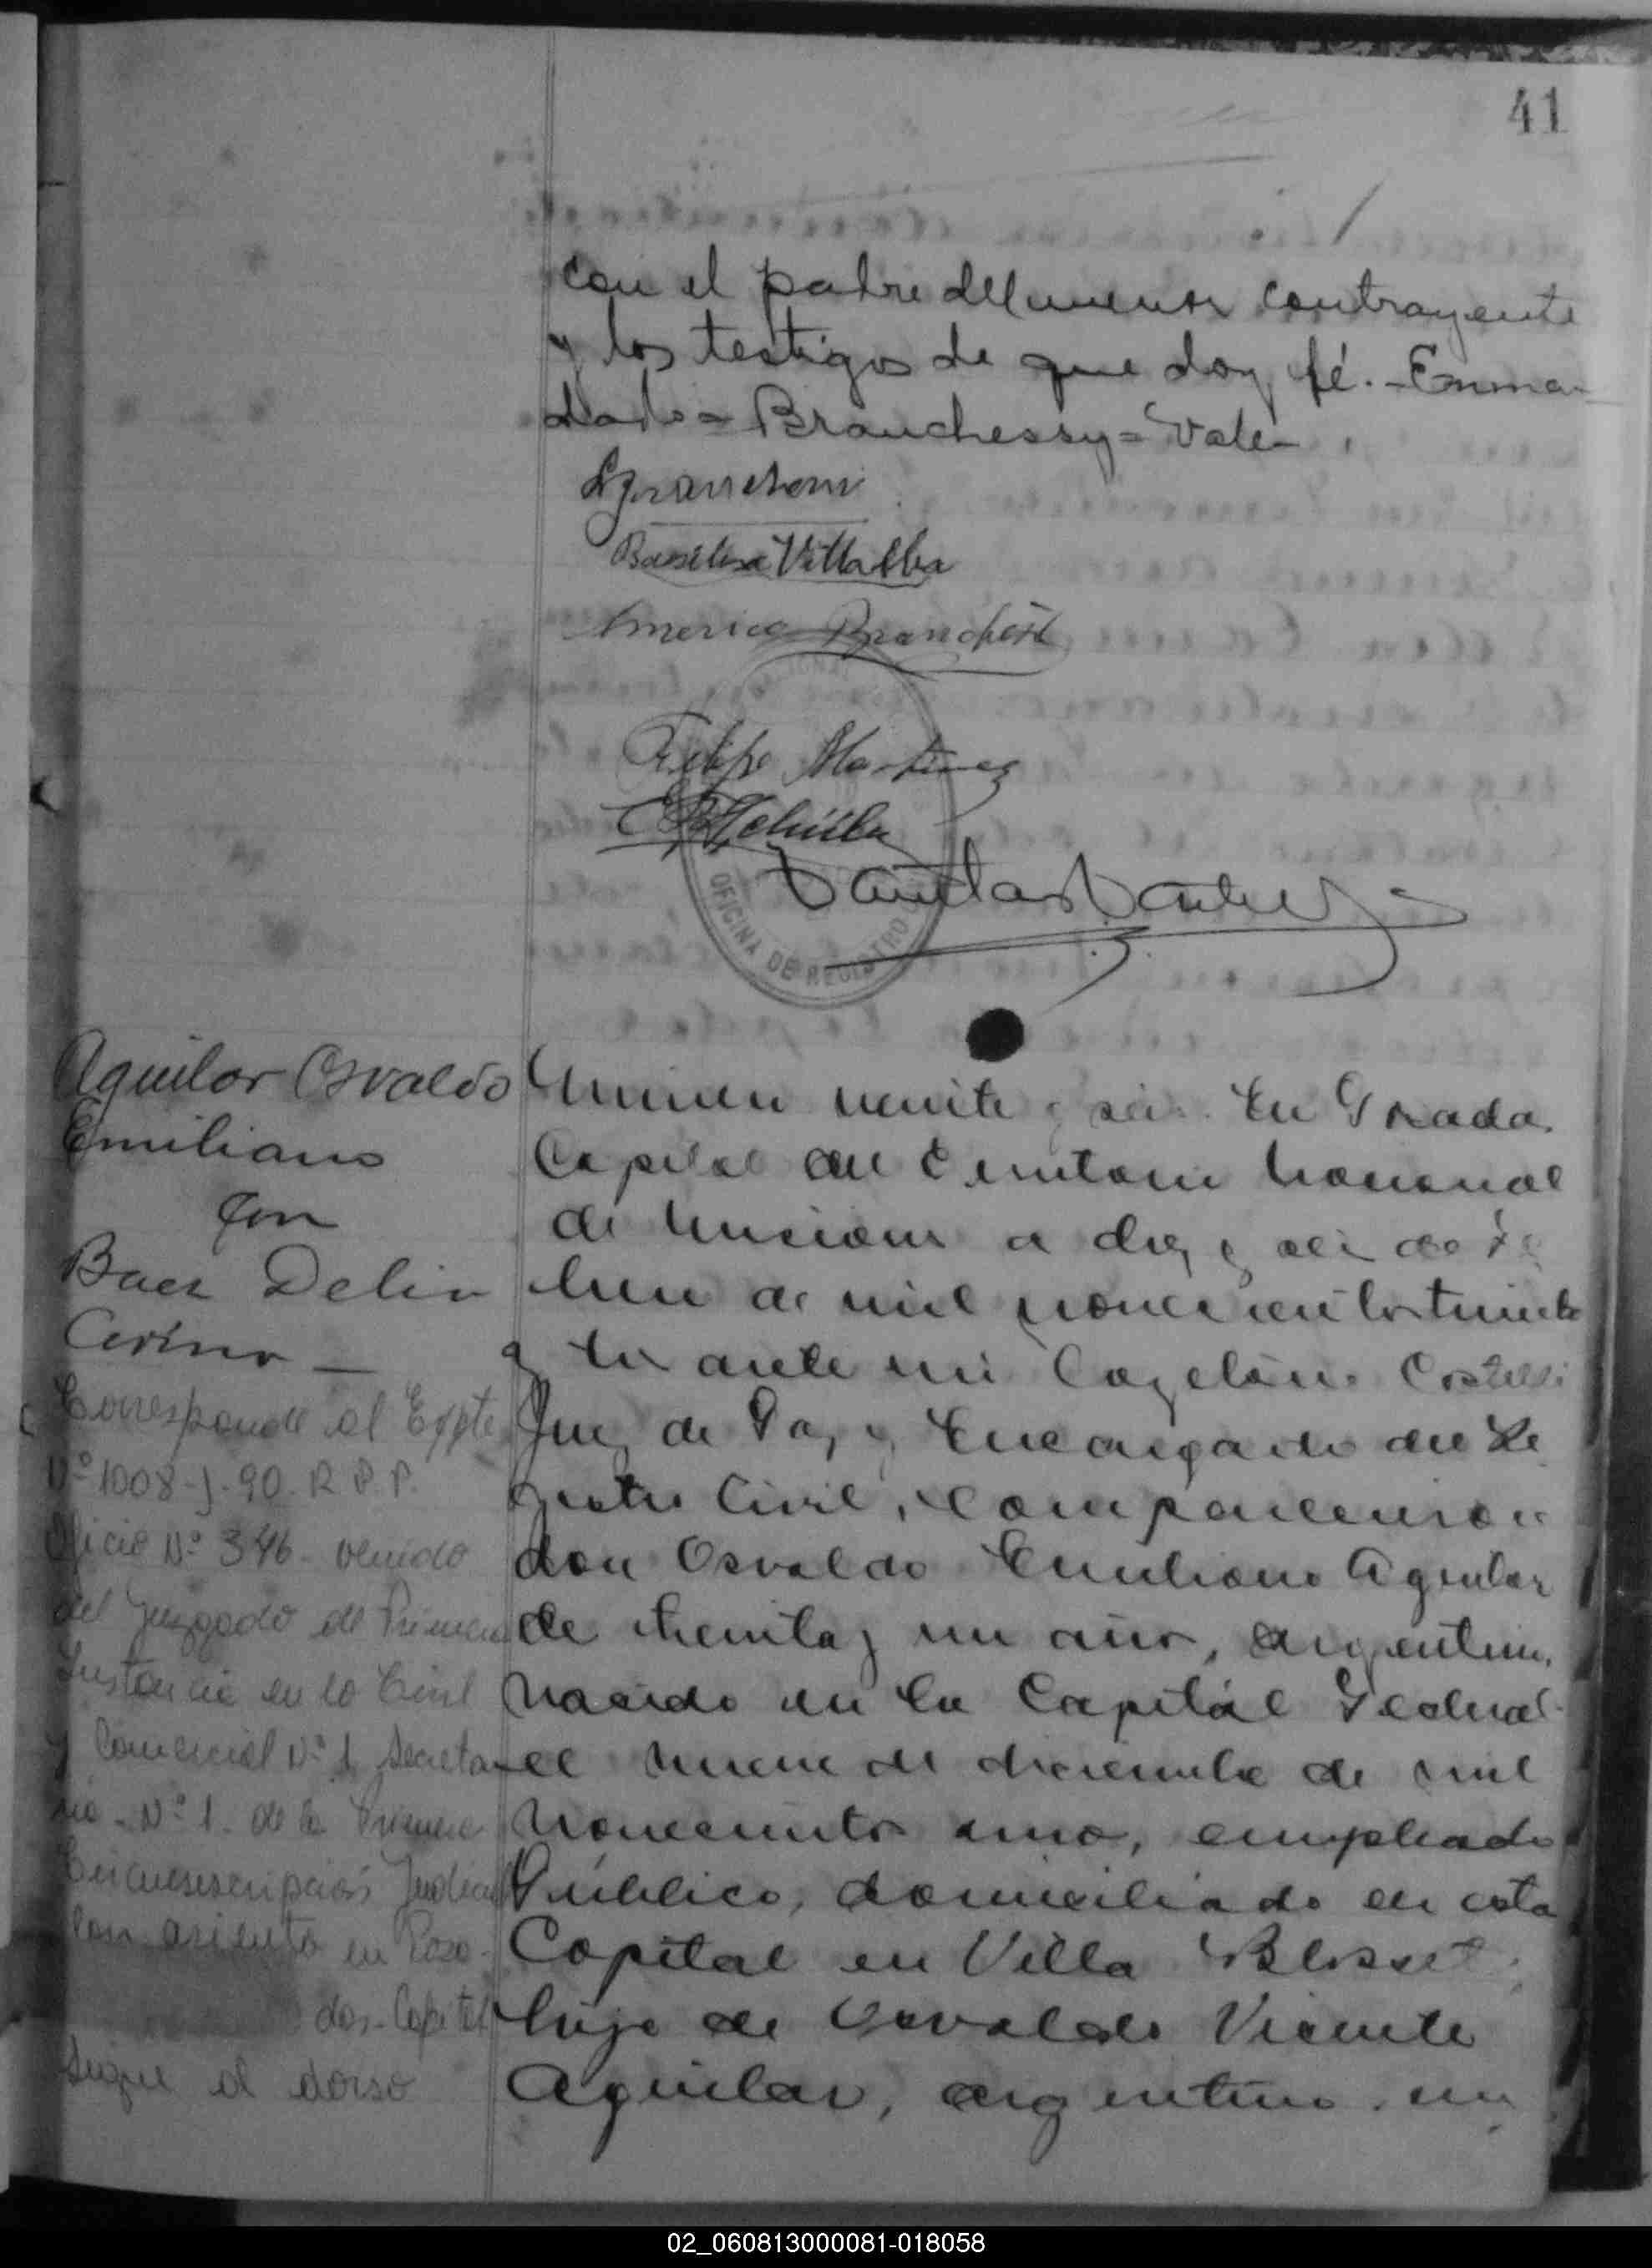 41
con el padre del menor contrayente
y los testigos de que doy fé. - Enmen-
dado = Branchessy = Vale -
Basilisa Villalba
Americo Branchesi
Felipe Martinez
OFICINA DE REGISTRO
Aguilar Osvaldo
Emiliano
con
Baez Delia
Número veinte y seis. En Posadas
Capital del Territorio Nacional
de Misiones a diez y seis de Fe
brero de mil novecientos treinta
y tres ante mi Costelli
Juez de Paz y Encargado del Re
gistro Civil, comparecieron
don Osvaldo Emiliano Aguilar
de treinta y un años, argentino,
nacido en la Capital Federal
el nueve de diciembre de mil
novecientos uno, empleado
Público, domiciliado en esta
Capital en Villa Blosset,
hijo de Osvaldo Vicente
Aguilar, argentino,
Corresponde al Expte
Nº 1008-J-90. R.P.P.
Oficio Nº 346 - venido
del Juzgado de Primera
Instancia en lo Civil
y Comercial Nº 1 Secreta-
ria - Nº 1 - de la Primera
Circunscripción Judicial
con asiento en Posa-
das - Capital
Sigue al dorso
02_060813000081-018058